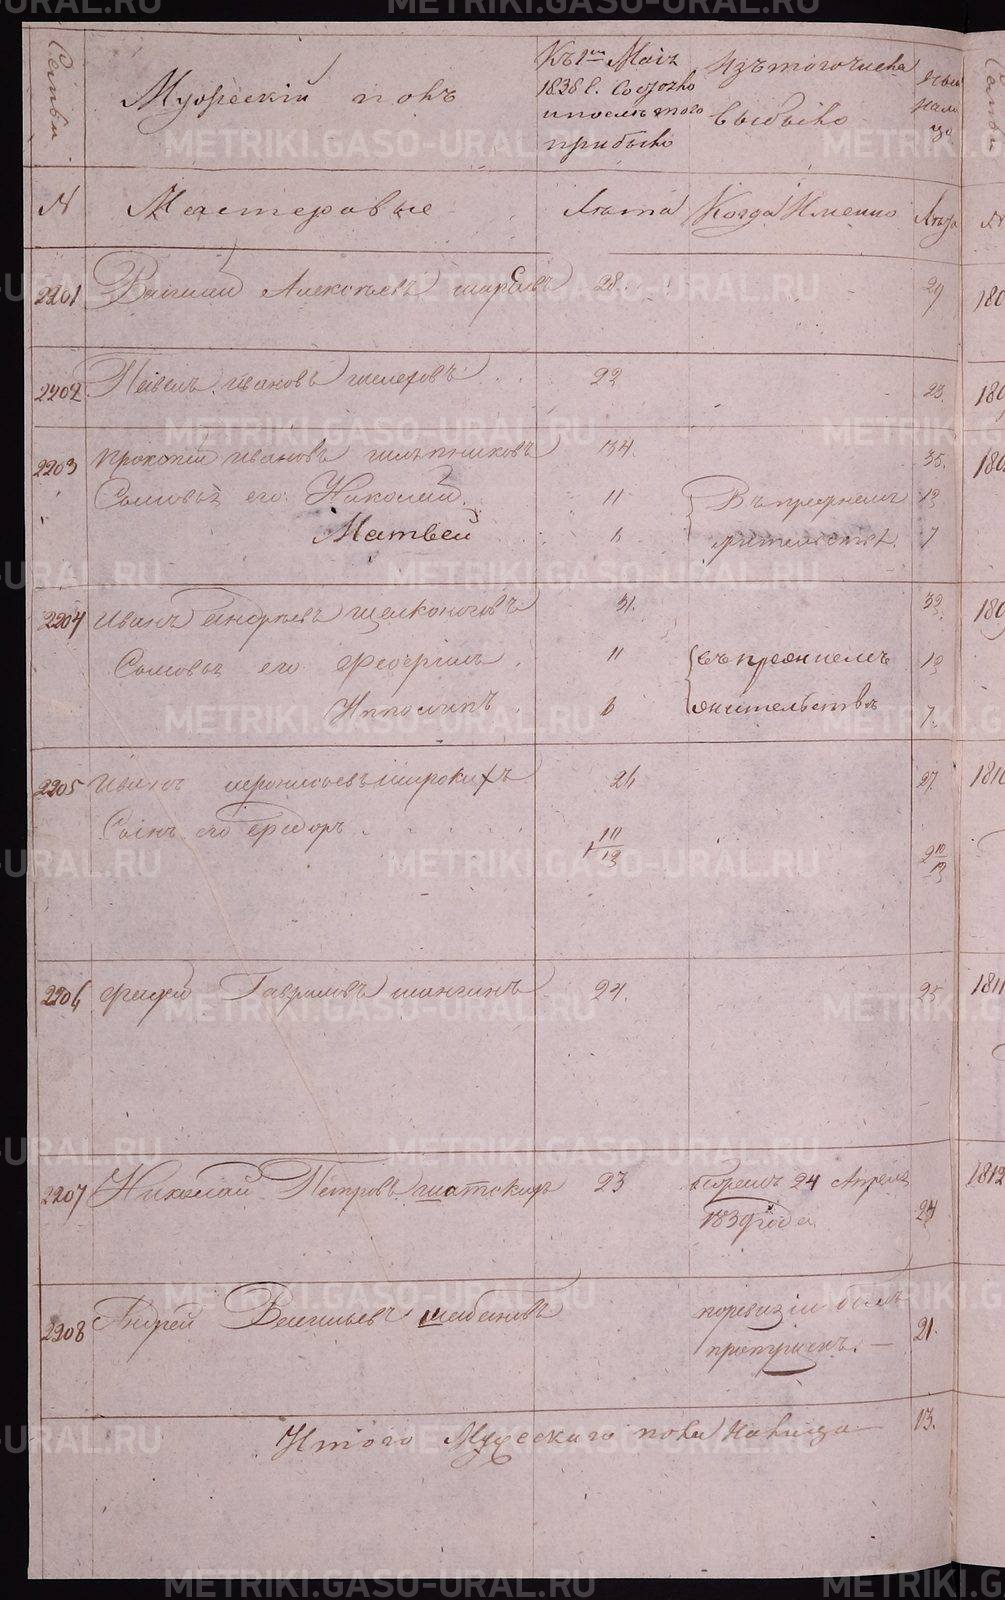 Семьи
Мужеский полъ
Къ 1му Маія
1838 г. Состояло
и после того
прибыло
Изъ того числа
выбыло
Налицо
N Мастеровые Лѣта Когда Именно Лѣта
2201 Василий Алексѣевъ 28. 29
2202 Павелъ Ивановъ 22 23.
2203 Прокопий Ивановъ 34. 35.
Сыновья его Николай. 11 Въ прежнемъ 12
Матвей 6 жительствѣ. 7
2204 Иванъ Андреевъ Щелконоговъ 31. 32.
Сыновья его 11 въ прежнемъ 12
Ипполитъ 6 жительствѣ 7.
2205 Иванъ Широкихъ 26 27.
Сынъ его Федоръ 1 11/12 2 11/12
2206 Гавриловъ 24. 25
2207 Николай Петровъ Шатский 23 24 Апреля
1839 года 24
2208 Андрей Васильевъ Шабановъ по ревизіи былъ
пропущенъ. — 21.
Итого Мужескаго пола налицо 13.
METRIKI.GASO-URAL.RU